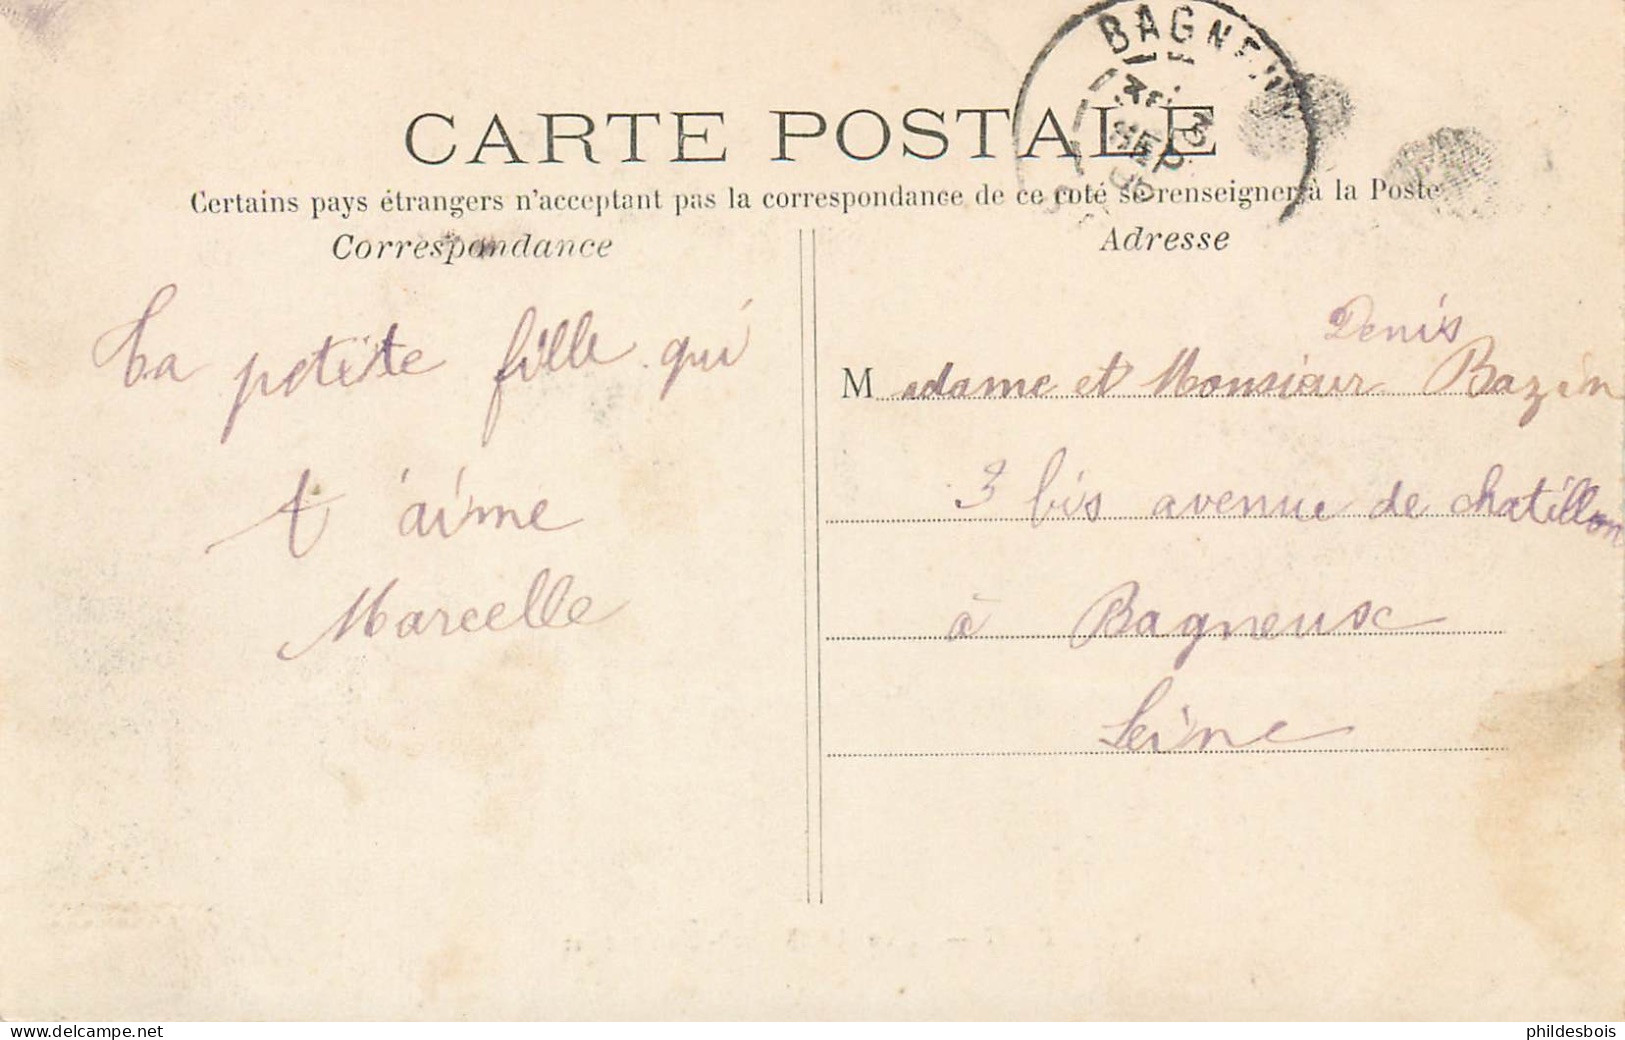 CARTE POSTALE
Certains pays étrangers n'acceptant pas la correspondance de ce coté se renseigner à la Poste
Correspondance
Adresse
Ta petite fille qui
t'aime
Marcelle
Denis
Madame et Monsieur Bazin
3 bis avenue de chatillon
à Bagneux
Seine
BAGNEUX
SEP
www.delcampe.net
phildesbois